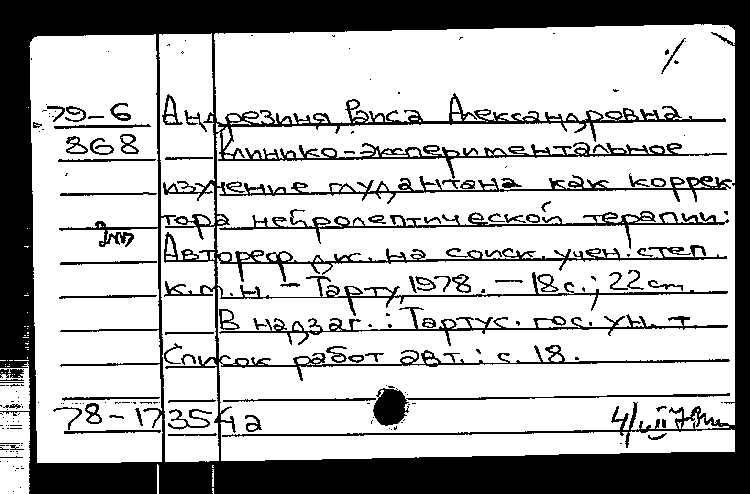 79-6 Андрезиня, Раиса Александровна.
868 Клинико-экспериментальное
изучение глудантана как коррек-
тора нейролептической терапии:
Автореф. дис. на соиск. учен. степ.
к.м.н. - Тарту, 1978. - 18 с.; 22 см.
В надзаг.: Тартус. гос. ун.-т.
Список работ авт.: с. 18.
78-17354а